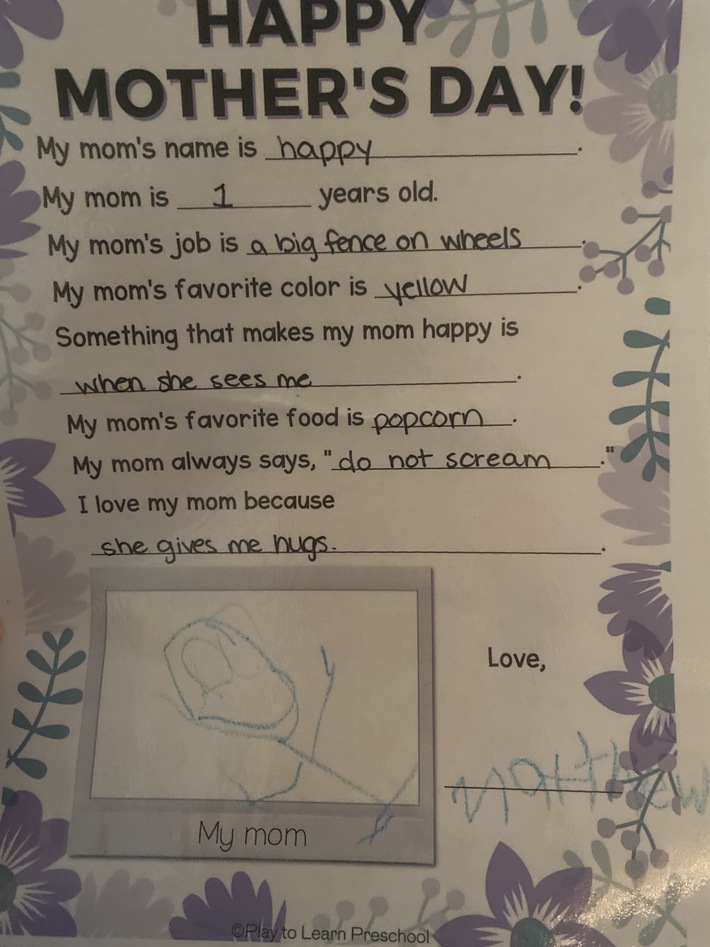 HAPPY
MOTHER'S DAY!
My mom's name is happy.
My mom is 1 years old.
My mom's job is a big fence on wheels.
My mom's favorite color is yellow.
Something that makes my mom happy is
when she sees me.
My mom's favorite food is popcorn.
My mom always says, "do not scream."
I love my mom because
she gives me hugs..
Love,
My mom
©Play to Learn Preschool